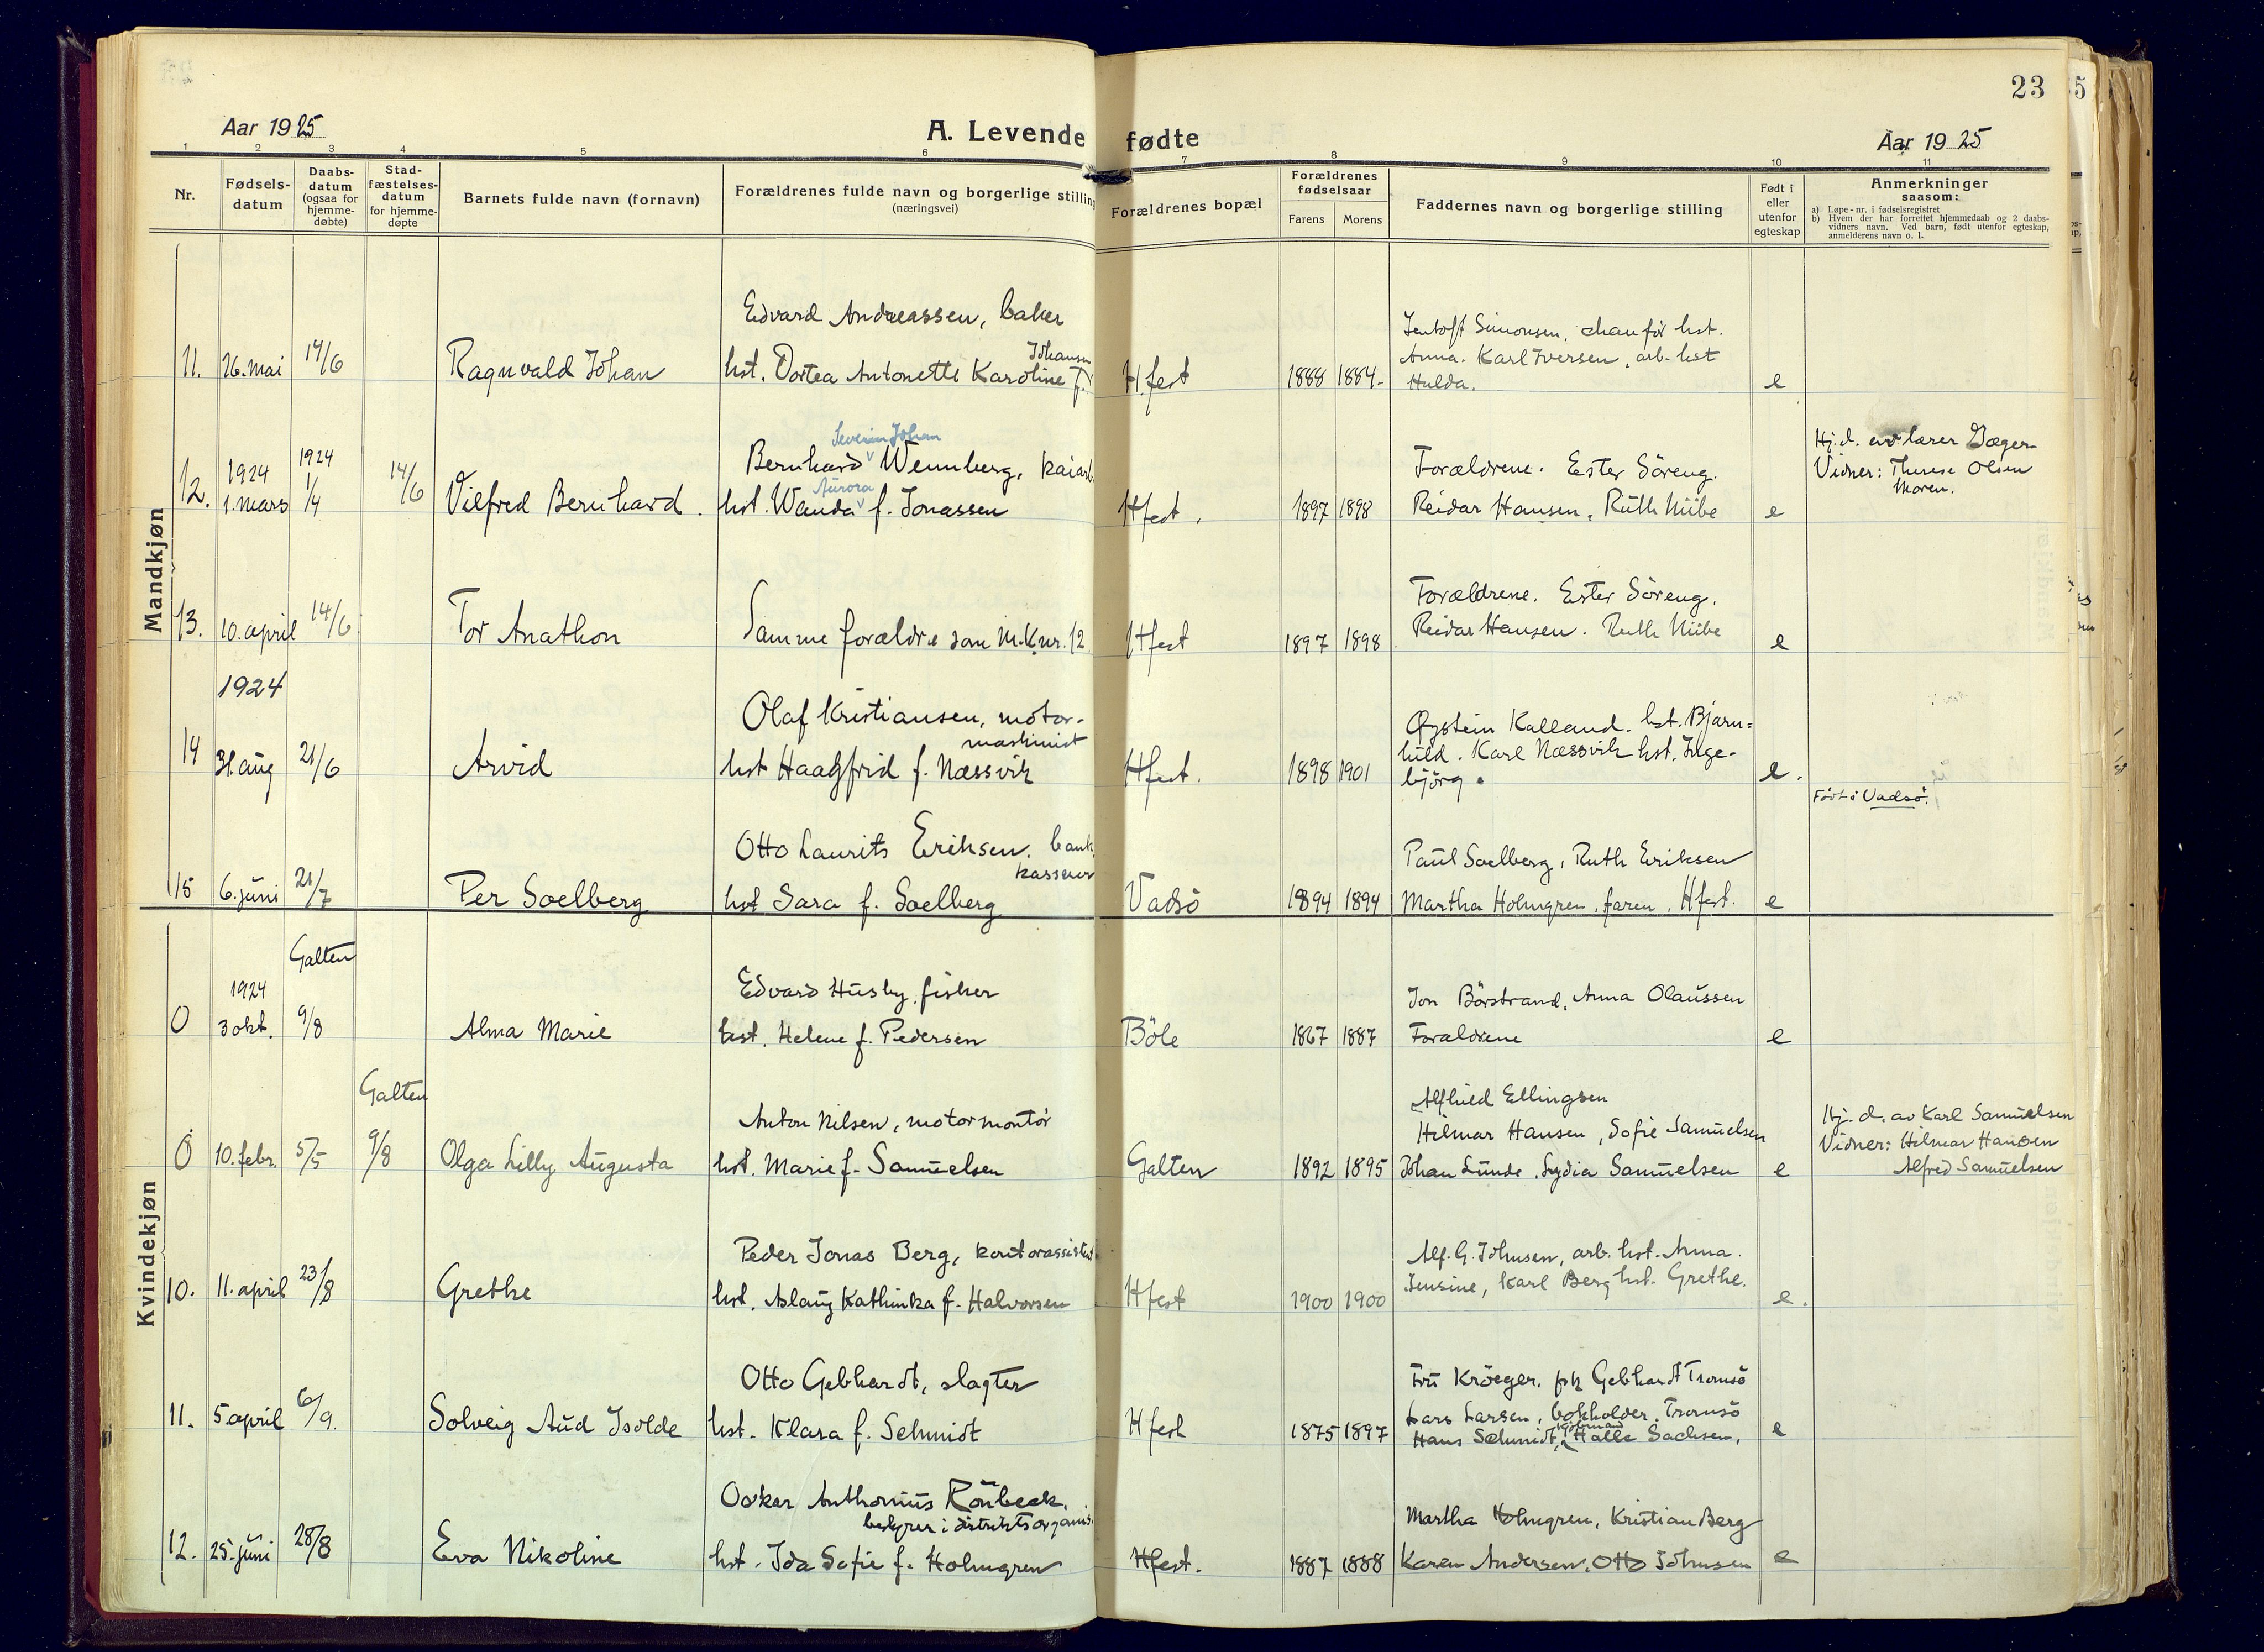 23
5
Aar 1925
A. Levende fødte
Aar 1925
1 2 3 4 5 6 7 8 9 10 11
Nr.
Fødsels-
datum
Daabs-
datum
(ogsaa for
hjemme-
døbte)
Stad-
fæstelses-
datum
for hjemme-
døpte
Barnets fulde navn (fornavn)
Forældrenes fulde navn og borgerlige stilling
(næringsvei)
Forældrenes bopæl
Forældrenes
fødselsaar
Farens Morens
Faddernes navn og borgerlige stilling
Født i
eller
utenfor
egteskap
Anmerkninger
saasom:
a) Løpe-nr. i fødselsregistret
b) Hvem der har forrettet hjemmedaab og 2 daabs-
vidners navn. Ved barn, født utenfor egteskap,
anmelderens navn o. l.
Mandkjøn
11. 26. mai 14/6
Ragnvald Johan
Edvard Andreassen, baker
Johansen
hst. Dortea Antonette Karoline f.
Hfest
1888 1884.
Jentoft Simonsen, chaufør hst.
Anna. Karl Iversen, arb. hst
Hulda.
e
12. 1924
1. mars
1924
1/4
14/6
Vilfred Bernhard.
Severin Johan
Bernhard Wennberg, kaiarb
Aurora
hst. Wanda f. Jonassen
Hfest.
1897 1898
Forældrene. Ester Söreng.
Reidar Hansen, Ruth Niibe
e
Hj. d. av lærer Jæger
Vidner: Therese Olsen
Moren.
13. 10. april 14/6
Tor Anathon
Samme forældre som M.K. nr. 12.
Hfest
1897 1898
Forældrene. Ester Söreng.
Reidar Hansen. Ruth Niibe
e
14 1924
31 aug 21/6
Arvid
Olaf Kristiansen, motor-
maskinist
hst Haagfrid f. Næssvik
Hfest.
1898 1901
Øystein Kalland. hst. Bjarn=
hild. Karl Næssvik hst. Inge-
björg.
e.
15 6. juni 21/7
Per Soelberg
Otto Laurits Eriksen. bank
kasserer
hst Sara f. Soelberg
Vadsö
1894 1894
Paul Soelberg, Ruth Eriksen
Martha Holmgren, faren. Hfest.
e
Født i Vadsö.
Kvindekjøn
0 1924
3 okt.
Galten
9/8
Alma Marie
Edvard Husby fisker
hst. Helene f. Pedersen
Böle
1867 1887
Jon Börstrand, Anna Olaussen
Forældrene
e
0 10. febr. 5/5
Galten
9/8
Olga Lilly Augusta
Anton Nilsen, motormontör
hst. Marie f. Samuelsen
Galten
1892 1895
Alfhild Ellingsen
Hilmar Hansen, Sofie Samuelsen
Johan Lunde, Lydia Samuelsen
e
Hj. d. av Karl Samuelsen
Vidner: Hilmar Hansen
Alfred Samuelsen
10. 11. april 23/8
Grethe
Peder Jonas Berg, kontorassistent
hst. Aslaug Kathinka f. Halvorsen
Hfest
1900 1900
Alf. G. Johnsen, arb. hst. Anna.
Jensine, Karl Berg hst. Grethe.
e.
11. 5 april 6/9.
Solveig Aud Isolde
Otto Gebhardt, slagter
hst. Klara f. Schmidt
Hfest
1875 1897
Fru Kröeger, frk Gebhardt Tromsö
Lars Larsen, bokholder, Tromsö
Hans Schmidt, kjöbmand Halle Sachsen,
e
12. 25. juni 28/8
Eva Nikoline
Oskar Anthonius Rönbeck,
bestyrer i distriktsorganis.
hst. Ida Sofie f. Holmgren
Hfest.
1887 1888
Martha Holmgren, Kristian Berg
Karen Andersen, Otto Johnsen
e